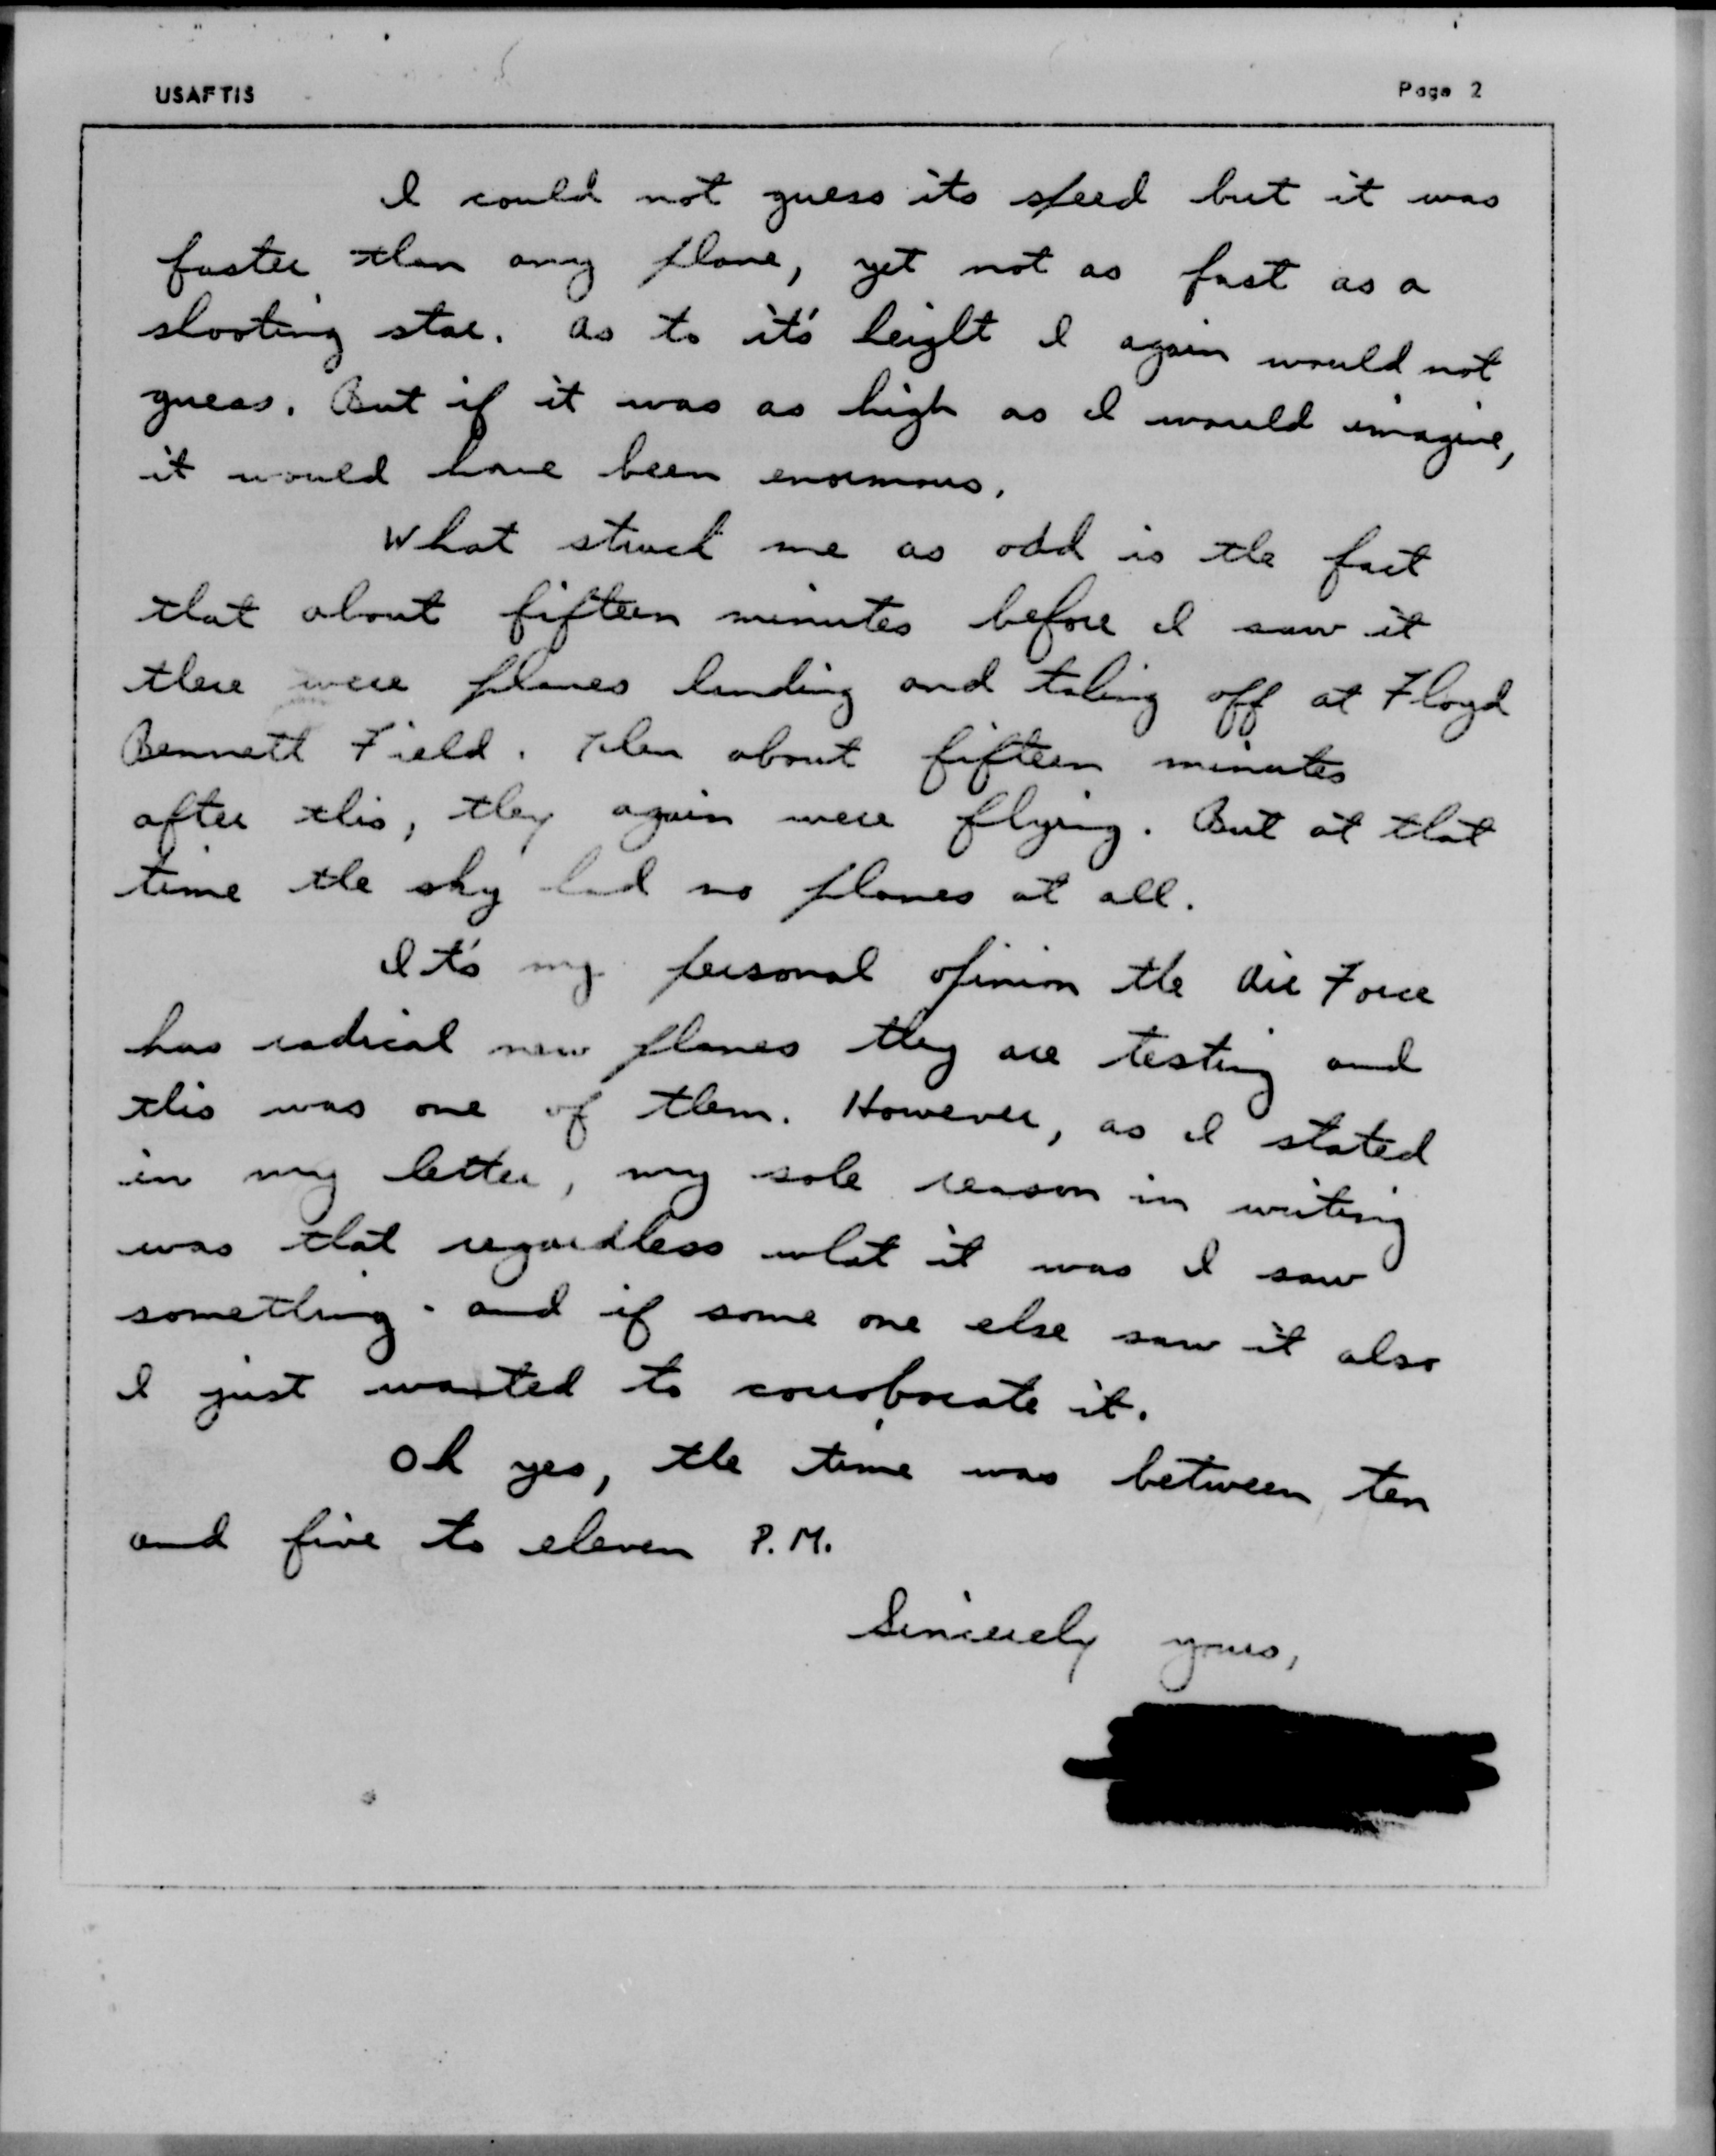 USAFTIS
Page 2
I could not guess its speed but it was
faster than any plane, yet not as fast as a
shooting star. As to it's height I again would not
guess. But if it was as high as I would imagine,
it would have been enormous.
What struck me as odd is the fact
that about fifteen minutes before I saw it
there were planes landing and taking off at Floyd
Bennett Field. Then about fifteen minutes
after this, they again were flying. But at that
time the sky had no planes at all.
It's my personal opinion the Air Force
has radical new planes they are testing and
this was one of them. However, as I stated
in my letter, my sole reason in writing
was that regardless what it was I saw
something - and if some one else saw it also
I just wanted to corroborate it.
Oh yes, the time was between ten
and five to eleven P.M.
Sincerely yours,